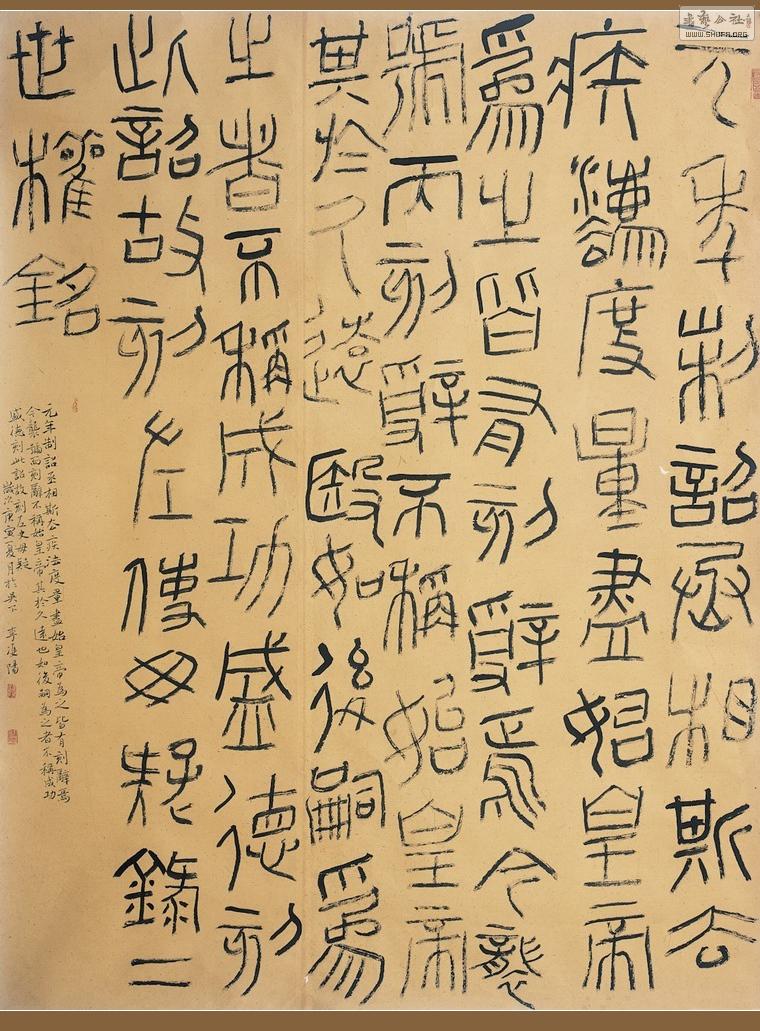 元年制詔丞相斯去
疾灋度量盡始皇帝
爲之皆有刻辭焉今襲
號而刻辭不稱始皇帝
其於久遠殹如後嗣爲
之者不稱成功盛德刻
此詔故刻左使毋疑錄二
世權銘
元年制詔丞相斯去疾法度量盡始皇帝為之皆有刻辭焉
今襲號而刻辭不稱始皇帝其於久遠也如後嗣為之者不稱成功
盛德刻此詔故刻左使毋疑
歲次庚寅夏月於吳下
WWW.SHUFA.ORG